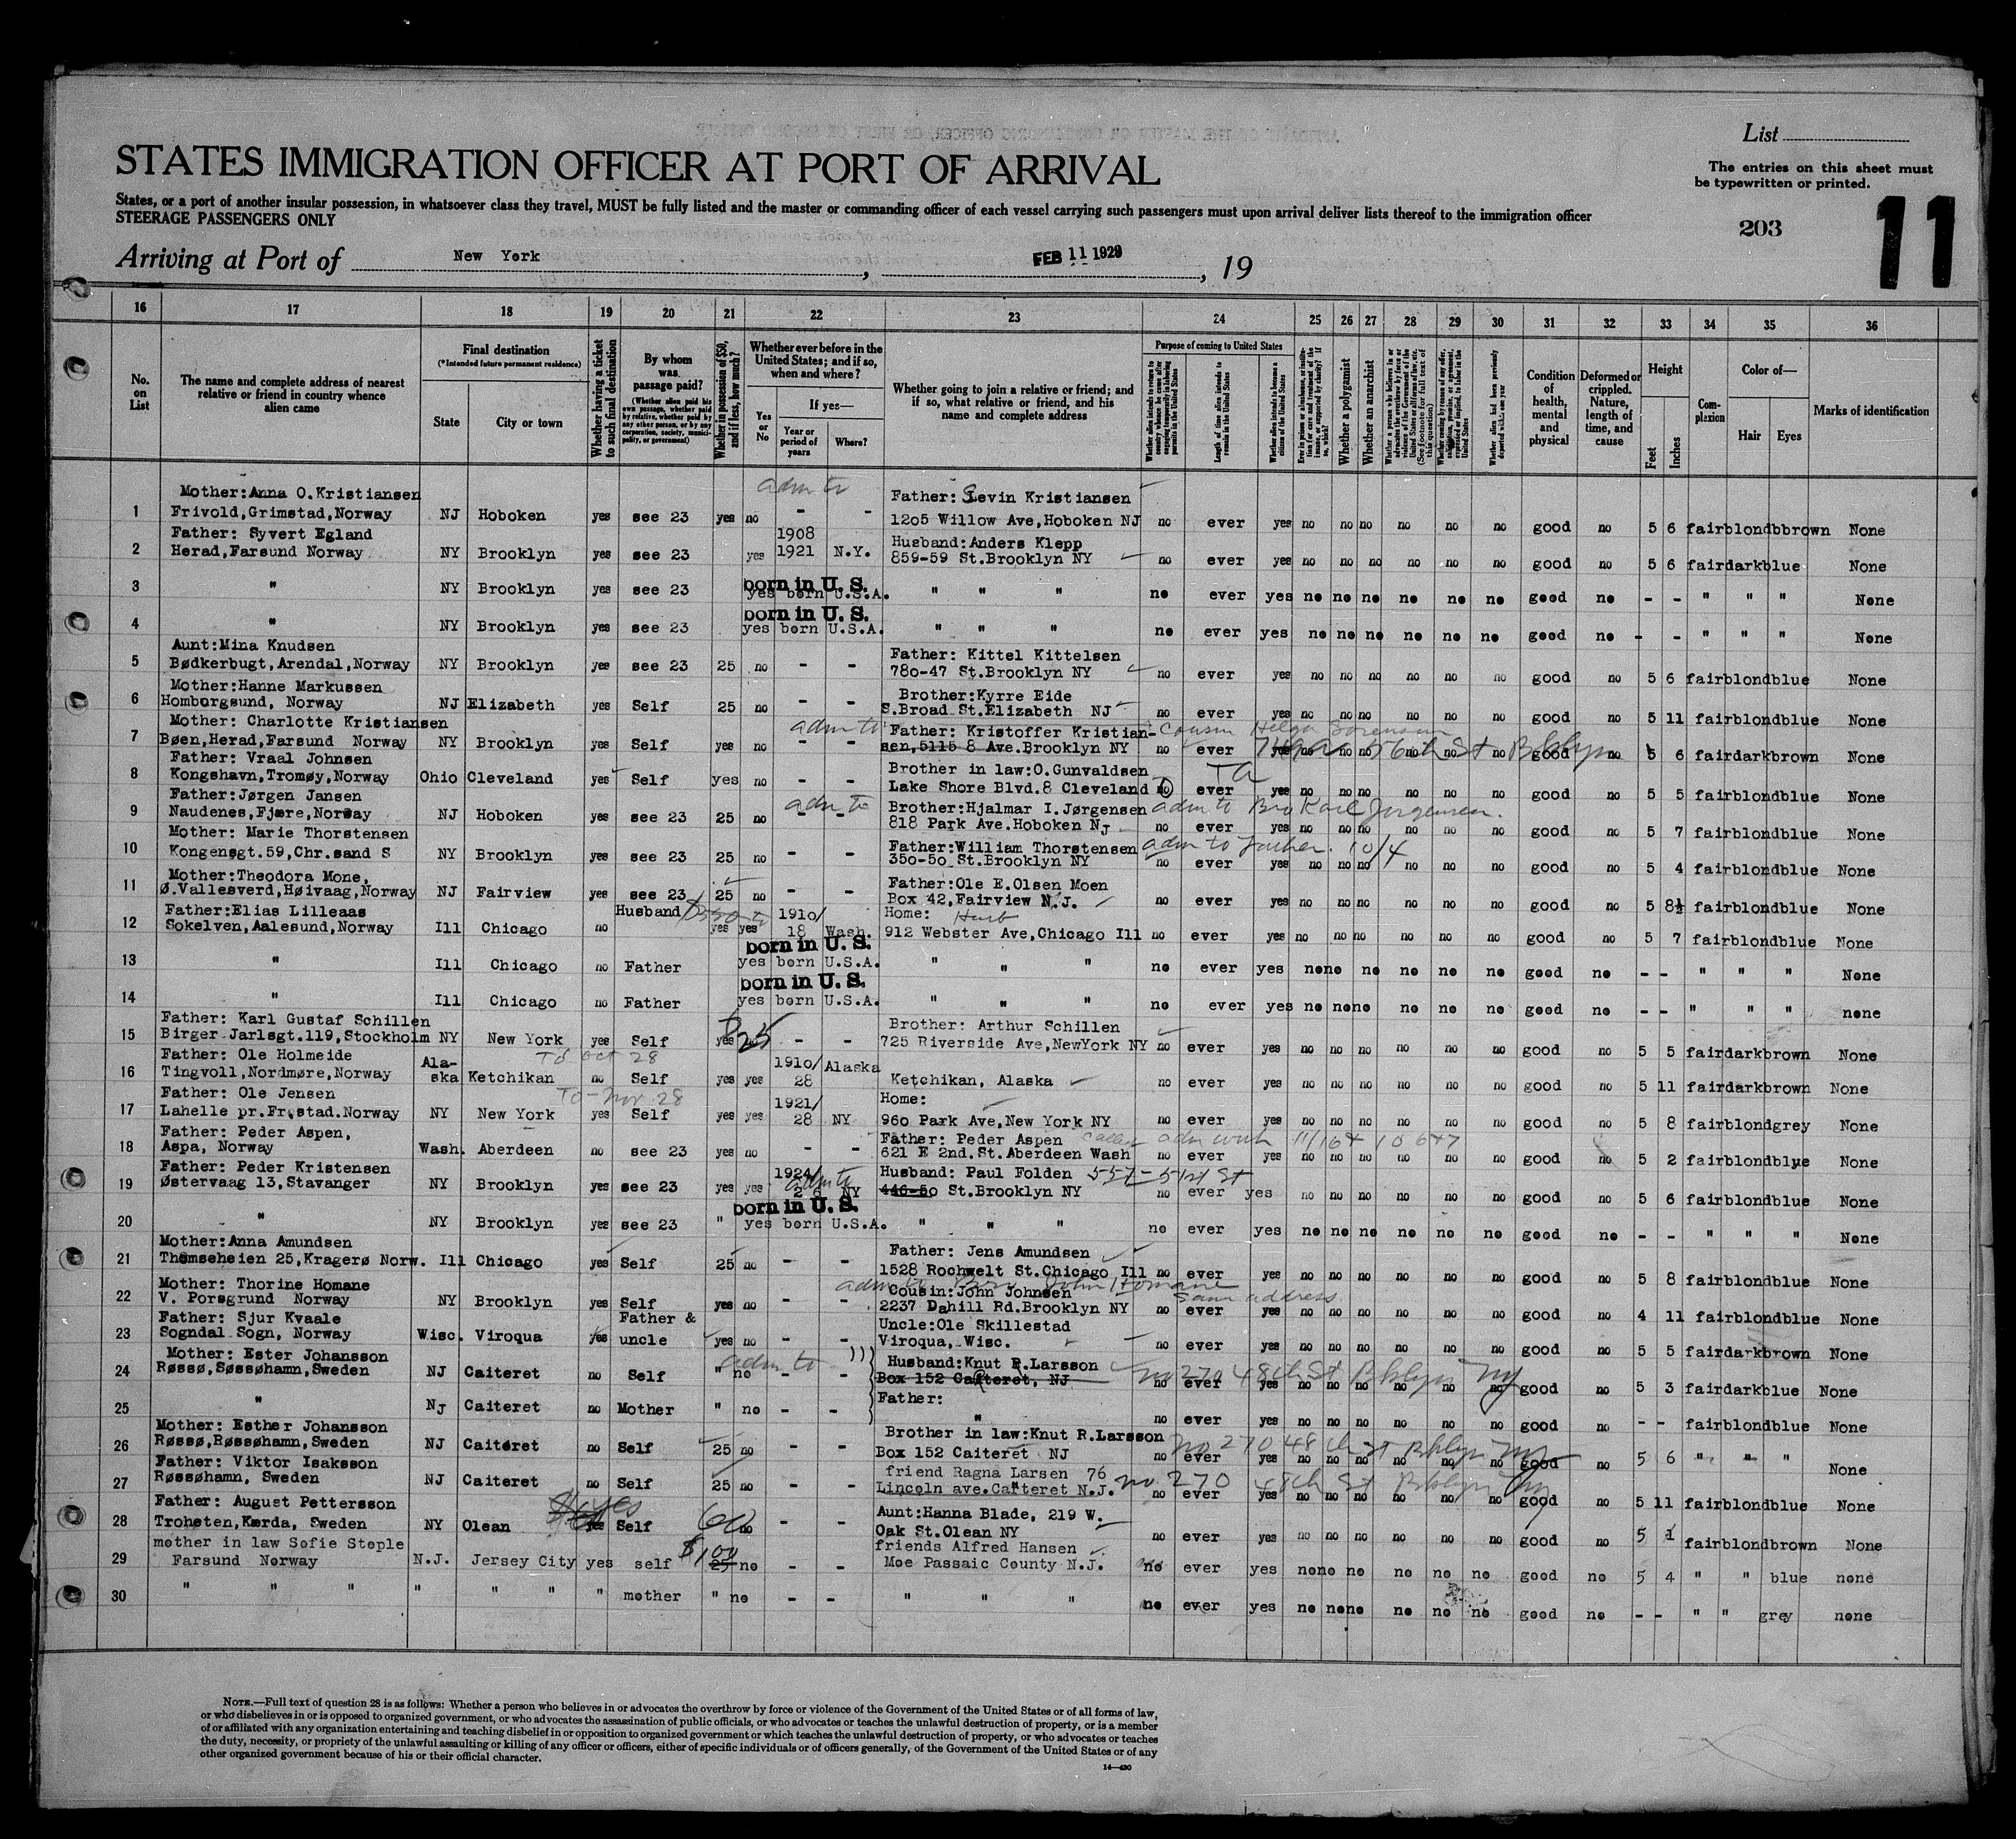 List
STATES IMMIGRATION OFFICER AT PORT OF ARRIVAL
The entries on this sheet must
be typewritten or printed.
States, or a port of another insular possession, in whatsoever class they travel, MUST be fully listed and the master or commanding officer of each vessel carrying such passengers must upon arrival deliver lists thereof to the immigration officer
STEERAGE PASSENGERS ONLY
203
11
Arriving at Port of New York , FEB 11 1929 , 19
16 17 18 19 20 21 22 23 24 25 26 27 28 29 30 31 32 33 34 35 36
No. on List
The name and complete address of nearest relative or friend in country whence alien came
Final destination
(*Intended future permanent residence)
State
City or town
Whether having a ticket to such final destination
By whom was passage paid?
(Whether alien paid his own passage, whether paid by relative, whether paid by any other person, or by any corporation, society, municipality, or government)
Whether in possession of $50, and if less, how much?
Whether ever before in the United States; and if so, when and where?
Yes or No
If yes—
Year or period of years
Where?
Whether going to join a relative or friend; and if so, what relative or friend, and his name and complete address
Purpose of coming to United States
Length of time alien intends to remain in the United States
Whether alien intends to become a citizen of the United States
Whether a polygamist
Whether an anarchist
Condition of health, mental and physical
Deformed or crippled. Nature, length of time, and cause
Height
Feet
Inches
Complexion
Color of—
Hair
Eyes
Marks of identification
Mother:Anna O.Kristiansen adm to Father: Sevin Kristiansen
1 Frivold,Grimstad,Norway NJ Hoboken yes see 23 yes no - - 1205 Willow Ave,Hoboken NJ no ever yes no no no no no no good no 5 6 fair blond bbrown None
Father: Syvert Egland 1908 Husband:Anders Klepp
2 Herad,Farsund Norway NY Brooklyn yes see 23 yes 1921 N.Y. 859-59 St.Brooklyn NY no ever yes no no no no no no good no 5 6 fair dark blue None
born in U. S.
3 " NY Brooklyn yes see 23 yes born U.S.A. " " " no ever yes no no no no no no good no - - " " " None
born in U. S.
4 " NY Brooklyn yes see 23 yes born U.S.A. " " " no ever yes no no no no no no good no - - " " " None
Aunt:Mina Knudsen Father: Kittel Kittelsen
5 Bødkerbugt,Arendal,Norway NY Brooklyn yes see 23 25 no - - 780-47 St.Brooklyn NY no ever yes no no no no no no good no 5 6 fair blond blue None
Mother:Hanne Markussen Brother:Kyrre Eide
6 Homborgsund, Norway NJ Elizabeth yes Self 25 no - - S.Broad St.Elizabeth NJ no ever yes no no no no no no good no 5 11 fair blond blue None
Mother: Charlotte Kristiansen adm to Father: Kristoffer Kristian- Cousin Helga Sorensen
7 Bøen,Herad,Farsund Norway NY Brooklyn yes Self yes no - - sen,5115 8 Ave.Brooklyn NY no ever yes no no no 56th St no Bklyn good no 5 6 fair dark brown None
Father: Vraal Johnsen Brother in law:O.Gunvaldsen
8 Kongshavn,Tromøy,Norway Ohio Cleveland yes Self yes no - - Lake Shore Blvd.8 Cleveland O ever yes no no no no no no good no 5 5 fair blond blue None
Father:Jørgen Jansen adm to Brother:Hjalmar I.Jørgensen adm to Bro Karl Jorgensen.
9 Naudenes,Fjære,Norway NJ Hoboken yes see 23 25 no - - 818 Park Ave.Hoboken NJ no ever yes no no no no no no good no 5 7 fair blond blue None
Mother: Marie Thorstensen Father:William Thorstensen adm to father. 10/4
10 Kongensgt.59,Chr.sand S NY Brooklyn yes see 23 25 no - - 350-50 St.Brooklyn NY no ever yes no no no no no no good no 5 4 fair blond blue None
Mother:Theodora Mone, Father:Ole E.Olsen Moen
11 Ø.Vallesverd,Høivaag,Norway NJ Fairview yes see 23 25 no - - Box 42,Fairview N.J. no ever yes no no no no no no good no 5 8½ fair blond blue None
Father:Elias Lilleaas Husband 1910/ Home:
12 Sokelven,Aalesund,Norway Ill Chicago no yes yes 18 Wash. 912 Webster Ave,Chicago Ill no ever yes no no no no no no good no 5 7 fair blond blue None
born in U. S.
13 " Ill Chicago no Father yes born U.S.A. " " " no ever yes no no no no no no good no - - " " " None
born in U. S.
14 " Ill Chicago no Father yes born U.S.A. " " " no ever yes no no no no no no good no - - " " " none
Father: Karl Gustaf Schillen Brother: Arthur Schillen
15 Birger Jarlsgt.119,Stockholm NY New York yes Self yes $25 - - 725 Riverside Ave,NewYork NY no ever yes no no no no no no good no 5 5 fair dark brown None
Father: Ole Holmeide Ala- To Oct 28 1910/ Alaska
16 Tingvoll,Nordmøre,Norway ska Ketchikan no Self yes yes 28 Ketchikan, Alaska no ever yes no no no no no no good no 5 11 fair dark brown None
Father: Ole Jensen To - Nov 28 1921/ Home:
17 Lahelle pr.Fr.stad.Norway NY New York yes Self yes yes 28 NY 960 Park Ave,New York NY no ever yes no no no no no no good no 5 8 fair blond grey None
Father: Peder Aspen, Father: Peder Aspen adm with
18 Aspa, Norway Wash. Aberdeen no see 23 yes no - - 621 E 2nd.St.Aberdeen Wash no ever yes no no no no no no good no 5 2 fair blond blue None
Father: Peder Kristensen 1924/ adm to Husband: Paul Folden 557-51st St
19 Østervaag 13,Stavanger NY Brooklyn yes see 23 yes yes 26 NY 446-50 St.Brooklyn NY no ever yes no no no no no no good no 5 6 fair blond blue None
born in U. S.
20 " NY Brooklyn yes see 23 " yes born U.S.A. " " " no ever yes no no no no no no good no - - " " " None
Mother:Anna Amundsen Father: Jens Amundsen
21 Thomseheien 25,Kragerø Norw. Ill Chicago yes Self 25 no - - 1528 Rochwelt St.Chicago Ill no ever yes no no no no no no good no 5 8 fair blond blue None
Mother: Thorine Homane adm to Bro. John Homane Cousin:John Johnsen same address
22 V. Porsgrund Norway NY Brooklyn yes Self yes no - - 2237 Dahill Rd.Brooklyn NY no ever yes no no no no no no good no 4 11 fair blond blue None
Father: Sjur Kvaale Father & Uncle:Ole Skillestad
23 Sogndal Sogn, Norway Wisc. Viroqua yes uncle yes no - - Viroqua, Wisc. no ever yes no no no no no no good no 5 5 fair dark brown None
Mother: Ester Johansson adm to Husband:Knut R.Larsson
24 Røssø,Søssøhamn,Sweden NJ Caiteret no Self " no - - Box 152 Caiteret, NJ no 270 48th St Bklyn NY no ever yes no no no no no no good no 5 3 fair dark blue None
Father:
25 " NJ Caiteret no Mother " no - - " no ever yes no no no no no no good no - - fair blond blue None
Mother: Esther Johansson Brother in law:Knut R.Larsson
26 Røssø,Røssøhamn,Sweden NJ Caiteret no Self 25 no - - Box 152 Caiteret NJ no 270 48th St Bklyn NY no ever yes no no no no no no good no 5 6 " " " None
Father: Viktor Isaksson friend Ragna Larsen 76
27 Røssøhamn, Sweden NJ Caiteret no Self 25 no - - Lincoln ave.Carteret N.J. no 270 48th St Bklyn NY no ever yes no no no no no no good no 5 11 fair blond blue None
Father: August Pettersson yes Aunt:Hanna Blade, 219 W.
28 Trohsten,Kærda, Sweden NY Olean yes Self 60 no - - Oak St.Olean NY no ever yes no no no no no no good no 5 1 fair blond brown None
mother in law Sofie Stople friends Alfred Hansen
29 Farsund Norway N.J. Jersey City yes self $100 25 no - - Moe Passaic County N.J. no ever yes no no no no no no good no 5 4 " " blue none
30 " " " " " " " mother " no - - " " " no ever yes no no no no no no good no - - " " grey none
NOTE.—Full text of question 28 is as follows: Whether a person who believes in or advocates the overthrow by force or violence of the Government of the United States or of all forms of law,
or who disbelieves in or is opposed to organized government, or who advocates the assassination of public officials, or who advocates or teaches the unlawful destruction of property, or is a member
of or affiliated with any organization entertaining and teaching disbelief in or opposition to organized government or which teaches the unlawful destruction of property, or who advocates or teaches
the duty, necessity, or propriety of the unlawful assaulting or killing of any officer or officers, either of specific individuals or of officers generally, of the Government of the United States or of any
other organized government because of his or their official character.
14—430